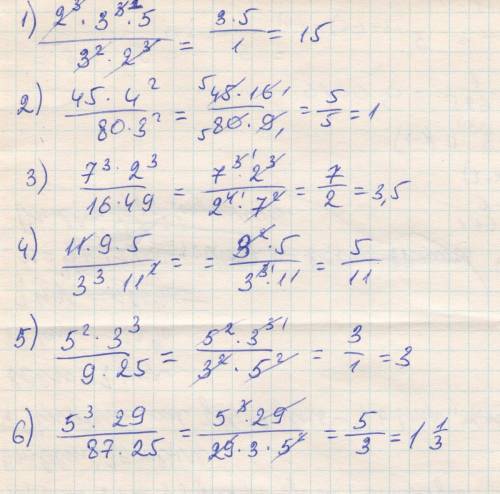 1) 2³ · 3³ ² · 5 / 3² · 2³ = 3 · 5 / 1 = 15
2) 45 · 4² / 80 · 3² = ⁵45 · 16¹ / ₅80 · 9₁ = 5/5 = 1
3) 7³ · 2³ / 16 · 49 = 7³ ¹ · 2³ / 2⁴ ¹ · 7² = 7/2 = 3,5
4) 11 · 9 · 5 / 3³ · 11² = = 3² · 5 / 3³ ¹ · 11 = 5/11
5) 5² · 3³ / 9 · 25 = 5² · 3³ ¹ / 3² · 5² = 3/1 = 3
6) 5³ · 29 / 87 · 25 = 5³ · 29 / 29 · 3 · 5² = 5/3 = 1 1/3